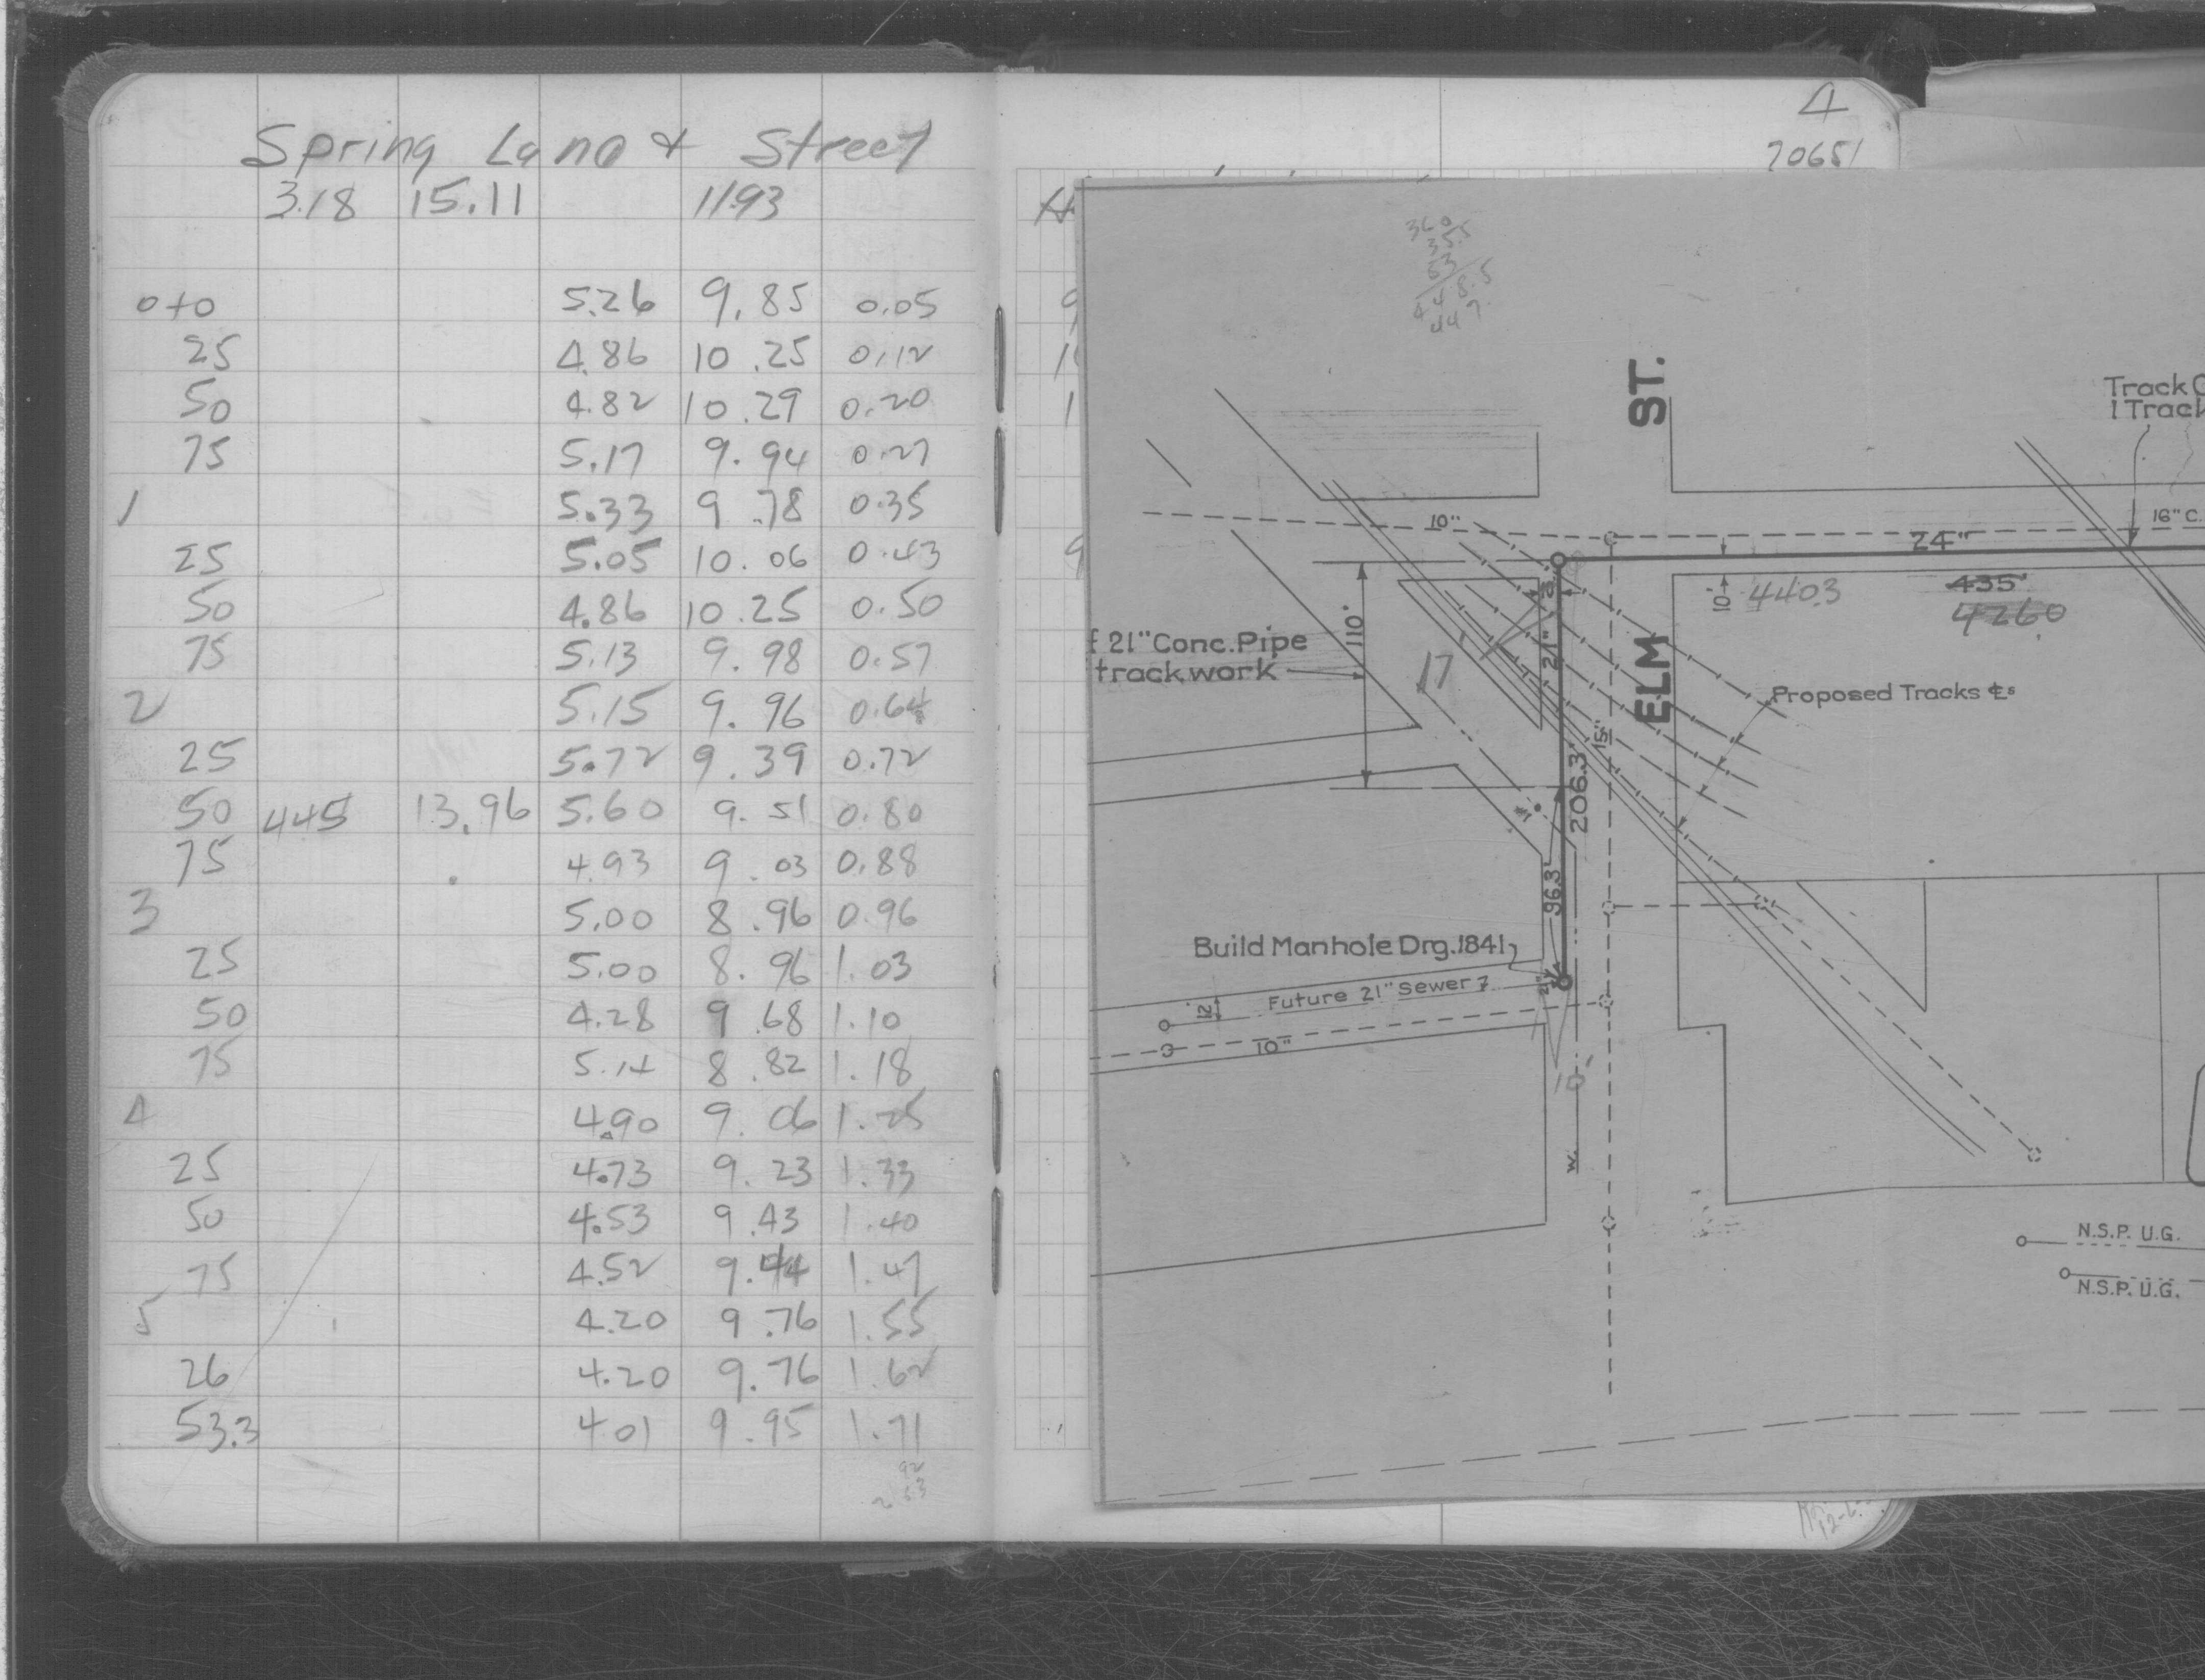 Spring Lane + Street
3.18 15.11 11.93
0+0 5.26 9.85 0.05
25 4.86 10.25 0.12
50 4.82 10.29 0.20
75 5.17 9.94 0.27
1 5.33 9.78 0.35
25 5.05 10.06 0.43
50 4.86 10.25 0.50
75 5.13 9.98 0.57
2 5.15 9.96 0.64
25 5.72 9.39 0.72
50 445 13.96 5.60 9.51 0.80
75 4.93 9.03 0.88
3 5.00 8.96 0.96
25 5.00 8.96 1.03
50 4.28 9.68 1.10
75 5.14 8.82 1.18
4 4.90 9.06 1.25
25 4.73 9.23 1.33
50 4.53 9.43 1.40
75 4.52 9.44 1.47
5 4.20 9.76 1.55
26 4.20 9.76 1.62
53.3 4.01 9.95 1.71
4
70651
360
35.5
53
448.5
447.
ST.
Track
1 Track
10"
24"
16" C.
10'
440.3
435'
426.0
110'
21" Conc. Pipe
track work
17
21"
ELM
15"
Proposed Tracks ℄s
206.3'
96.3'
Build Manhole Drg. 1841
Future 21" Sewer
12'
10"
10'
W.
N.S.P. U.G.
N.S.P. U.G.